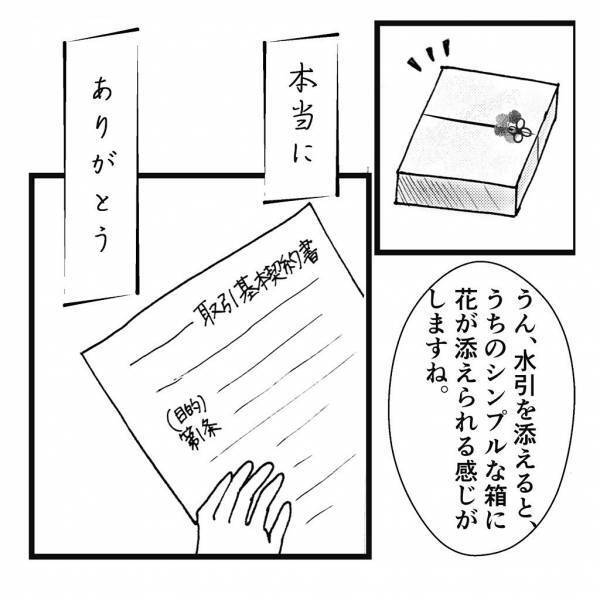 うん、水引を添えると、
うちのシンプルな箱に
花が添えられる感じが
しますね。
本当に
ありがとう
取引基本契約書
(目的)
第1条